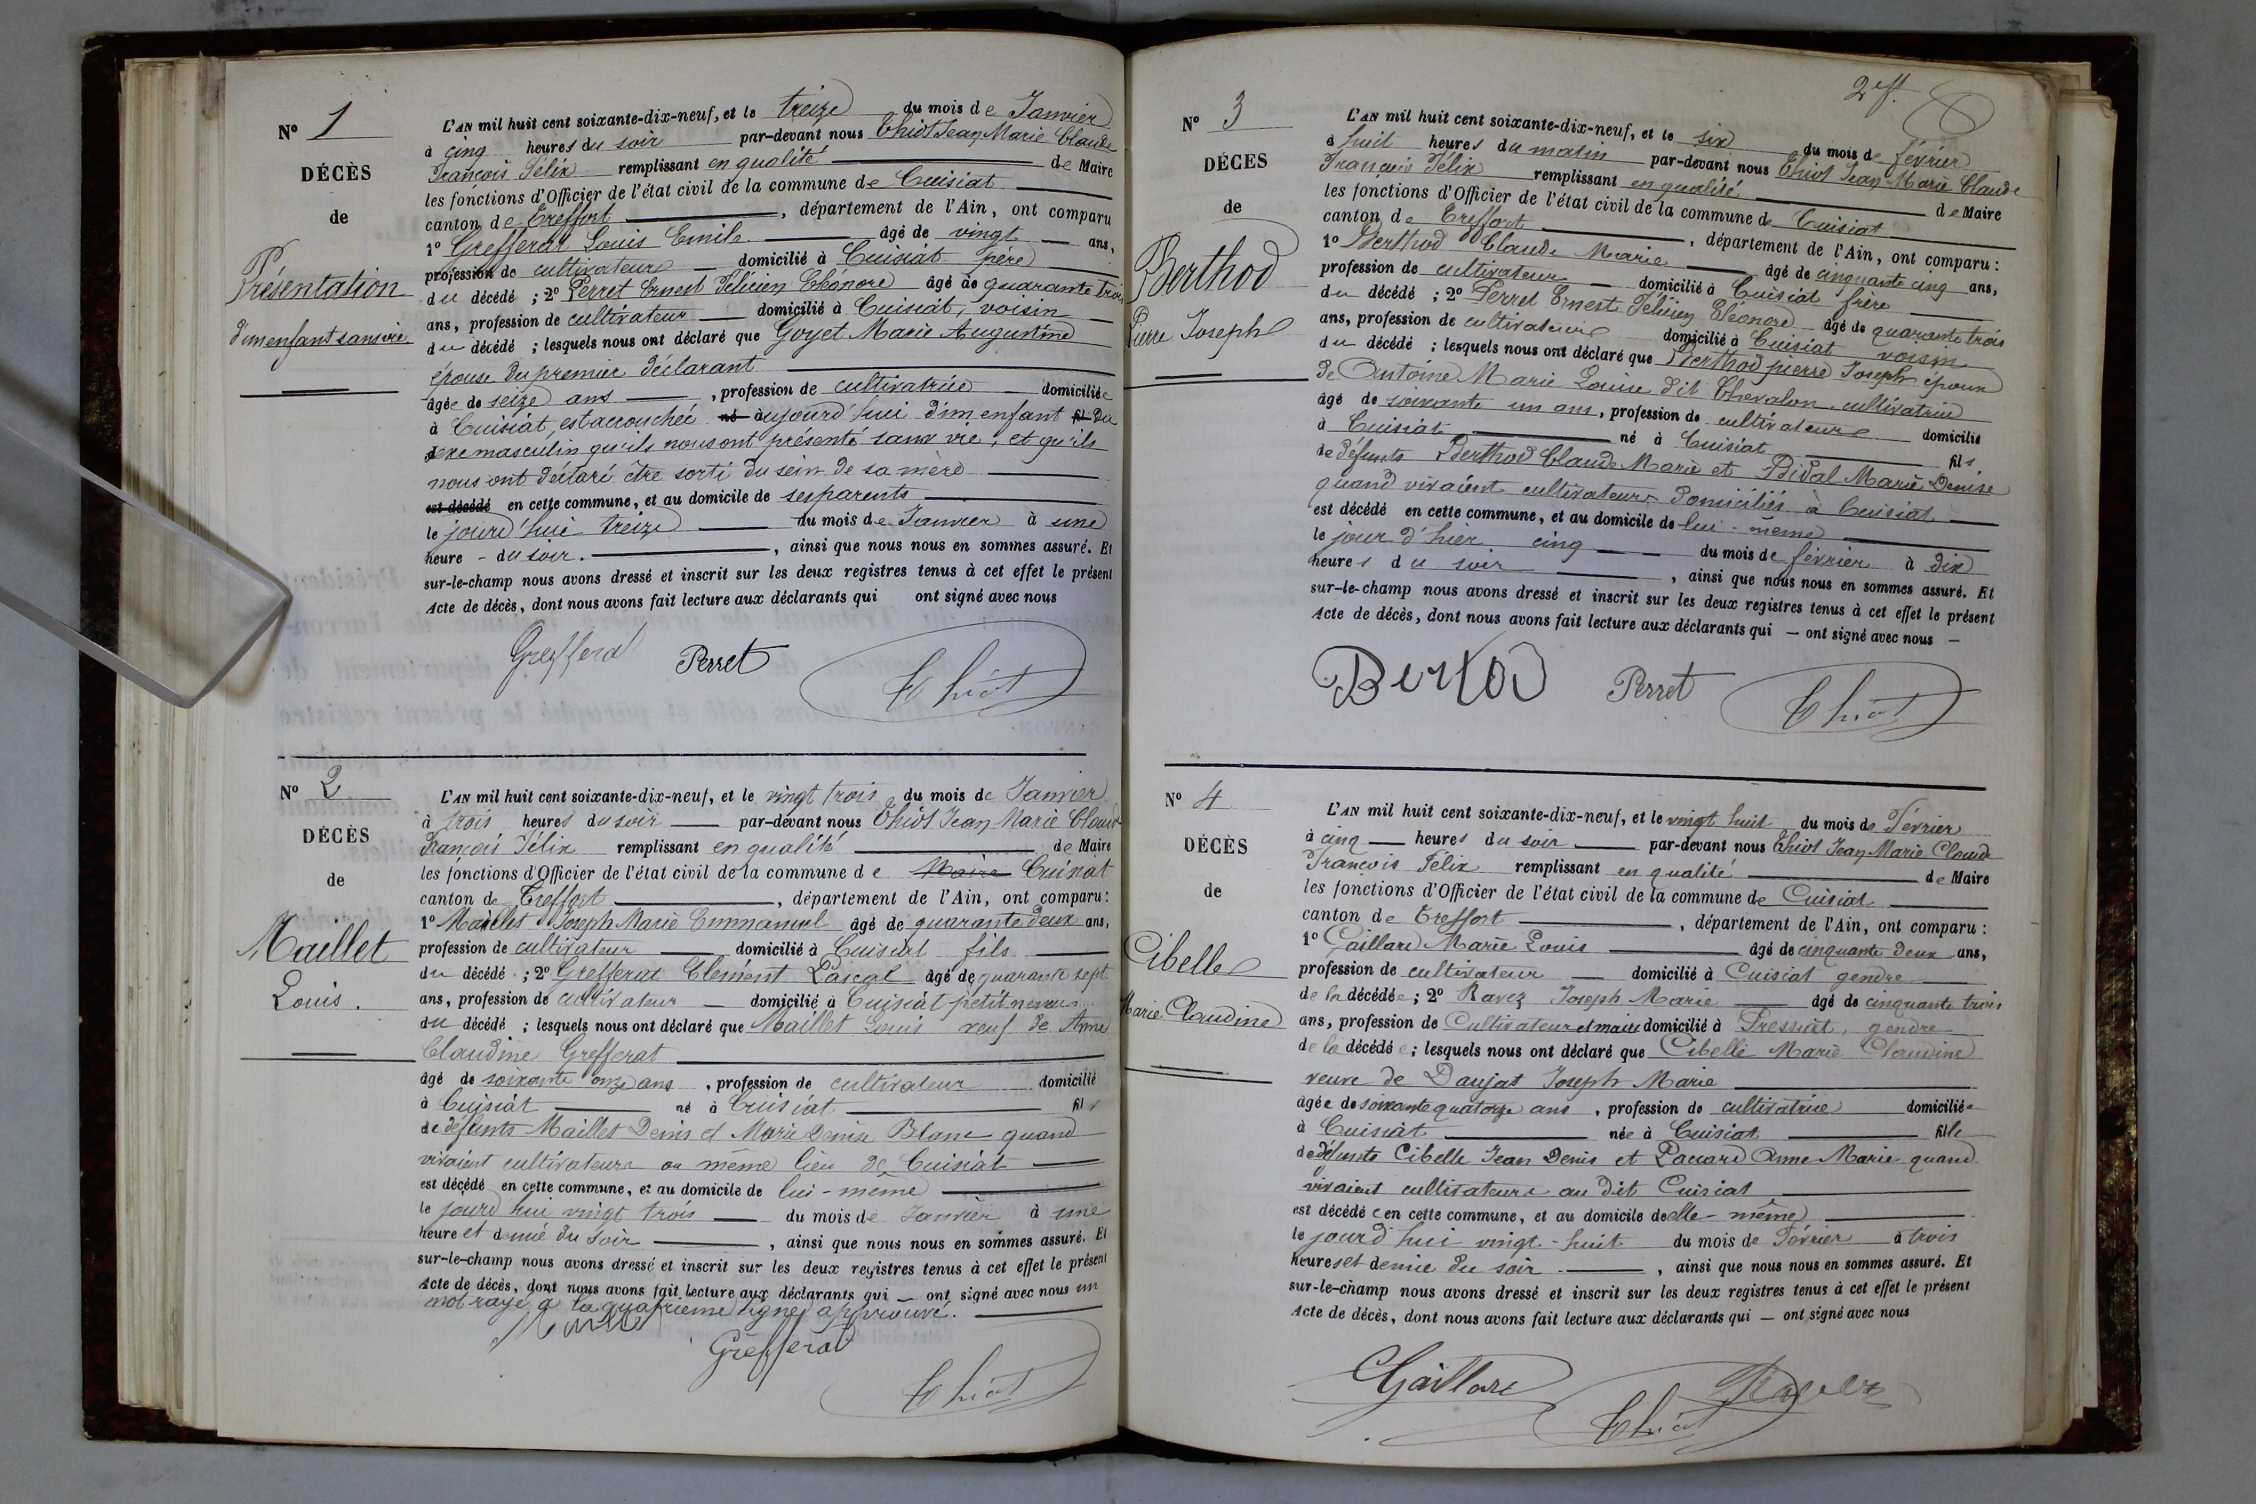 Nº 1
DÉCÈS
de
Présentation
d'un enfant sans vie
L'AN mil huit cent soixante-dix-neuf, et le treize du mois de Janvier
à cinq heures du soir par-devant nous Thiot Jean Marie Claude
François Félix remplissant en qualité de Maire
les fonctions d'Officier de l'état civil de la commune de Cuisiat
canton de Treffort, département de l'Ain, ont comparu
1º Grefferat Louis Emile âgé de vingt ans,
profession de cultivateur domicilié à Cuisiat père
du décédé ; 2º Perret Ernest Félicien Eléonore âgé de quarante trois
ans, profession de cultivateur domicilié à Cuisiat, voisin
du décédé ; lesquels nous ont déclaré que Goyet Marie Augustine
épouse du premier déclarant
âgée de seize ans, profession de cultivatrice domiciliée
à Cuisiat, est accouchée né aujourd'hui d'un enfant fil du
sexe masculin qu'ils nous ont présenté sans vie ; et qu'ils
nous ont déclaré être sorti du sein de sa mère
est décédé en cette commune, et au domicile de ses parents
le jourd'hui treize du mois de Janvier à une
heure du soir., ainsi que nous nous en sommes assuré. Et
sur-le-champ nous avons dressé et inscrit sur les deux registres tenus à cet effet le présent
Acte de décès, dont nous avons fait lecture aux déclarants qui ont signé avec nous
Grefferat Perret Thiot
Nº 2
DÉCÈS
de
Maillet
Louis.
L'AN mil huit cent soixante-dix-neuf, et le vingt trois du mois de Janvier
à trois heures du soir par-devant nous Thiot Jean Marie Claude
François Félix remplissant en qualité de Maire
les fonctions d'Officier de l'état civil de la commune de Maire Cuisiat
canton de Treffort, département de l'Ain, ont comparu :
1º Maillet Joseph Marie Emmanuel âgé de quarante deux ans,
profession de cultivateur domicilié à Cuisiat fils
du décédé ; 2º Grefferat Clément Pascal âgé de quarante sept
ans, profession de cultivateur domicilié à Cuisiat petit neveu
du décédé ; lesquels nous ont déclaré que Maillet Louis veuf de Anne
Claudine Grefferat
âgé de soixante onze ans, profession de cultivateur domicilié
à Cuisiat né à Cuisiat fils
de défunts Maillet Denis et Marie Denise Blanc quand
vivaient cultivateurs au même lieu de Cuisiat
est décédé en cette commune, et au domicile de lui-même
le jourd'hui vingt trois du mois de Janvier à une
heure et demie du soir, ainsi que nous nous en sommes assuré. Et
sur-le-champ nous avons dressé et inscrit sur les deux registres tenus à cet effet le présent
Acte de décès, dont nous avons fait lecture aux déclarants qui — ont signé avec nous un
mot rayé à la quatrième ligne approuvé.
Maillet Grefferat
Thiot
2 eff.
Nº 3
DÉCÈS
de
Berthod
Pierre Joseph
L'AN mil huit cent soixante-dix-neuf, et le six du mois de février
à huit heures du matin par-devant nous Thiot Jean-Marie Claude
François Félix remplissant en qualité de Maire
les fonctions d'Officier de l'état civil de la commune de Cuisiat
canton de Treffort, département de l'Ain, ont comparu :
1º Berthod Claude Marie âgé de cinquante cinq ans,
profession de cultivateur domicilié à Cuisiat frère
du décédé ; 2º Perret Ernest Félicien Eléonore âgé de quarante trois
ans, profession de cultivateur domicilié à Cuisiat voisin
du décédé ; lesquels nous ont déclaré que Berthod pierre Joseph époux
de Antoine Marie Louise dit Chevalon cultivatrice
âgé de soixante un ans, profession de cultivateur domicilié
à Cuisiat né à Cuisiat fils
de défunts Berthod Claude Marie et Bidal Marie Denise
quand vivaient cultivateurs domiciliés à Cuisiat
est décédé en cette commune, et au domicile de lui-même
le jour d'hier cinq du mois de février à dix
heures du soir, ainsi que nous nous en sommes assuré. Et
sur-le-champ nous avons dressé et inscrit sur les deux registres tenus à cet effet le présent
Acte de décès, dont nous avons fait lecture aux déclarants qui — ont signé avec nous —
Bertod Perret Thiot
Nº 4
DÉCÈS
de
Cibelle
Marie Claudine
L'AN mil huit cent soixante-dix-neuf, et le vingt huit du mois de Février
à cinq heures du soir par-devant nous Thiot Jean Marie Claude
François Félix remplissant en qualité de Maire
les fonctions d'Officier de l'état civil de la commune de Cuisiat
canton de Treffort, département de l'Ain, ont comparu :
1º Gaillard Marie Louis âgé de cinquante deux ans,
profession de cultivateur domicilié à Cuisiat gendre
de la décédée ; 2º Ravez Joseph Marie âgé de cinquante trois
ans, profession de Cultivateur et maire domicilié à Pressiat, gendre
de la décédée ; lesquels nous ont déclaré que Cibelle Marie Claudine
veuve de Daujat Joseph Marie
âgée de soixante quatorze ans, profession de cultivatrice domiciliée
à Cuisiat née à Cuisiat fille
de défunts Cibelle Jean Denis et Paccard Anne Marie quand
vivaient cultivateurs au dit Cuisiat
est décédée en cette commune, et au domicile d'elle-même
le jourd'hui vingt-huit du mois de Février à trois
heures et demie du soir, ainsi que nous nous en sommes assuré. Et
sur-le-champ nous avons dressé et inscrit sur les deux registres tenus à cet effet le présent
Acte de décès, dont nous avons fait lecture aux déclarants qui — ont signé avec nous
Gaillard Ravez
Thiot